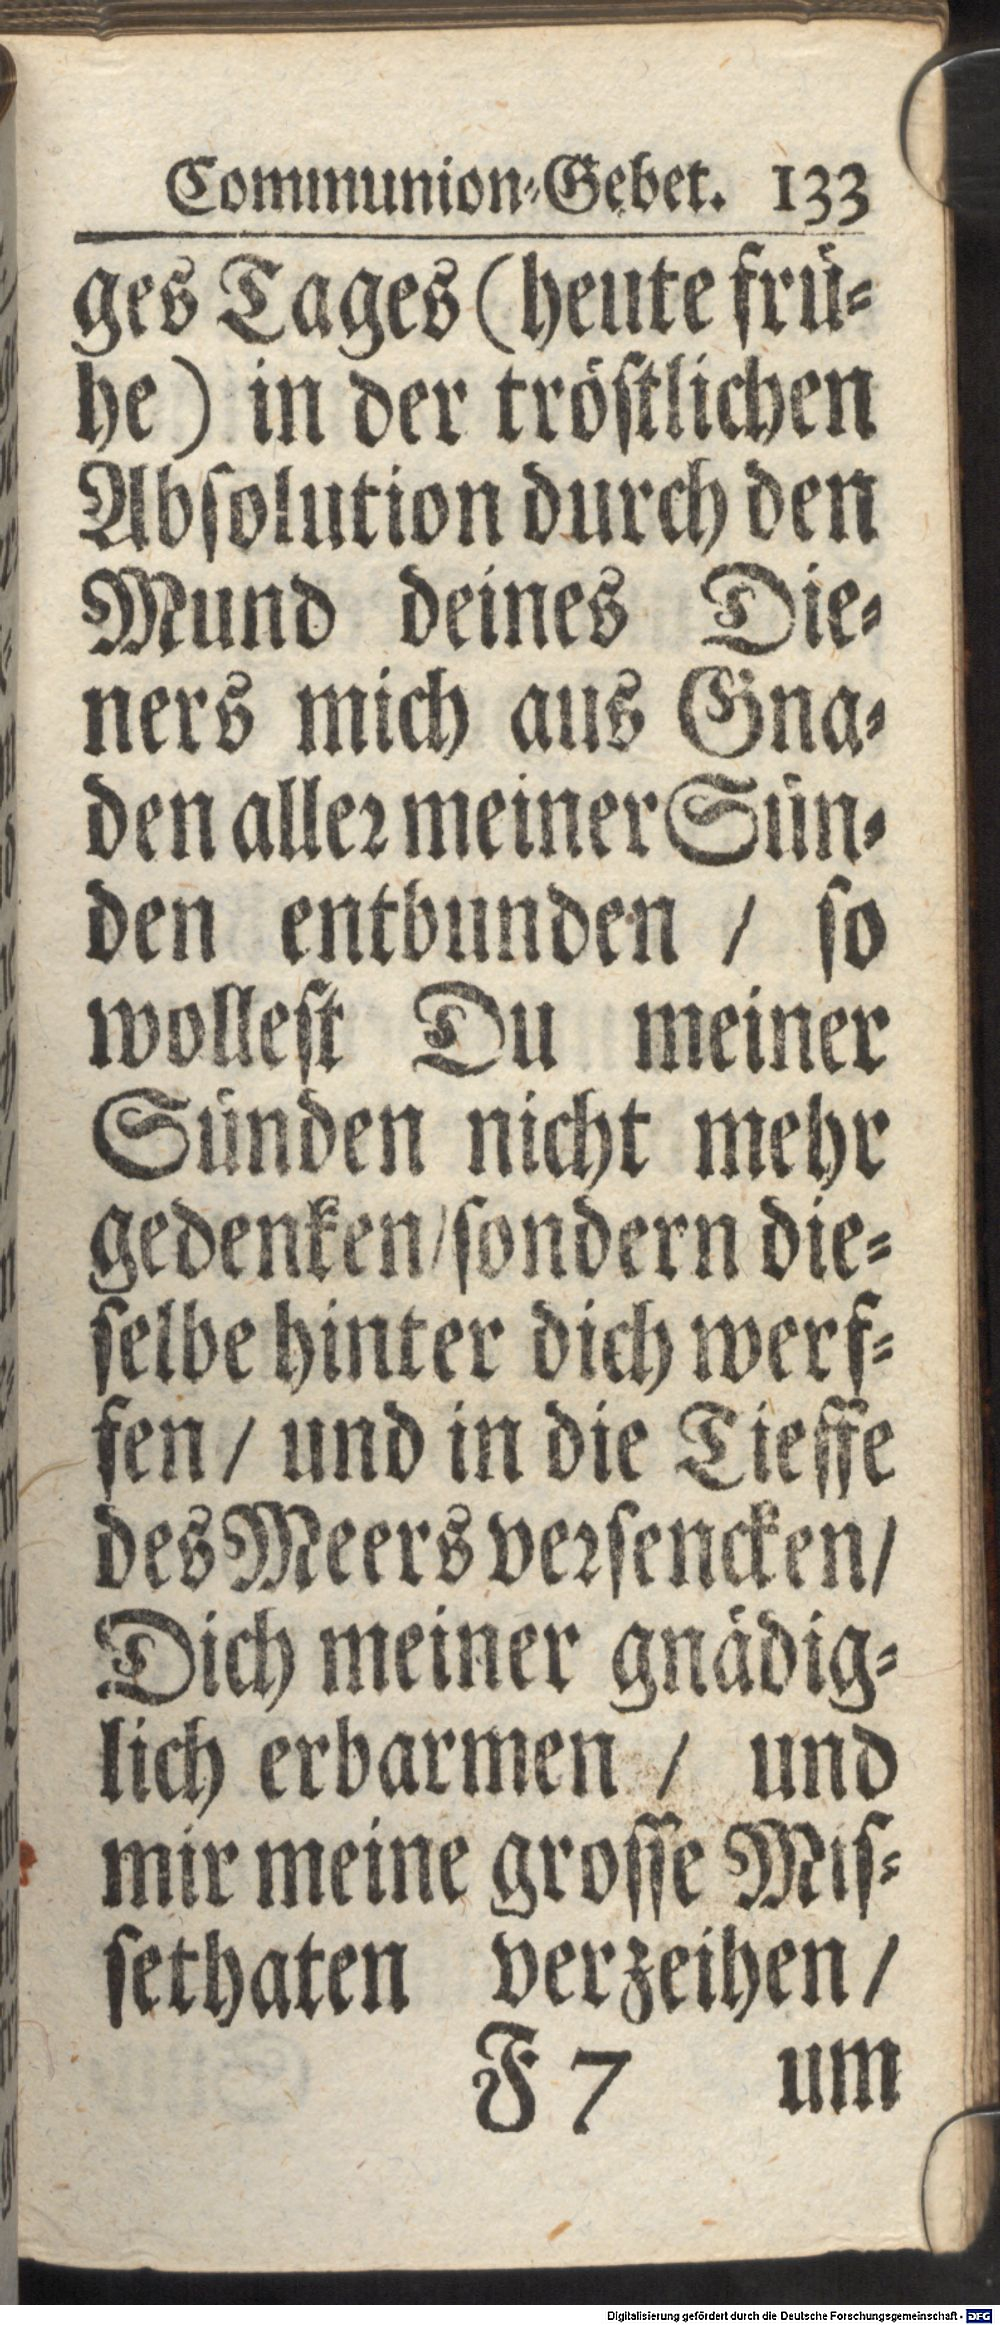 Communion-Gebet. 133
ges Tages (heute frü-
he) in der tröſtlichen
Abſolution durch den
Mund deines Die-
ners mich aus Gna-
den alleꝛ meiner Sün-
den entbunden / ſo
wolleſt Du meiner
Sünden nicht mehr
gedenken/ſondern die-
ſelbe hinter dich werf-
fen / und in die Tieffe
des Meers veꝛſencken/
Dich meiner gnädig-
lich erbarmen / und
mir meine groſſe Miſ-
ſethaten verzeihen /
F 7 um
Digitalisierung gefördert durch die Deutsche Forschungsgemeinschaft - DFG